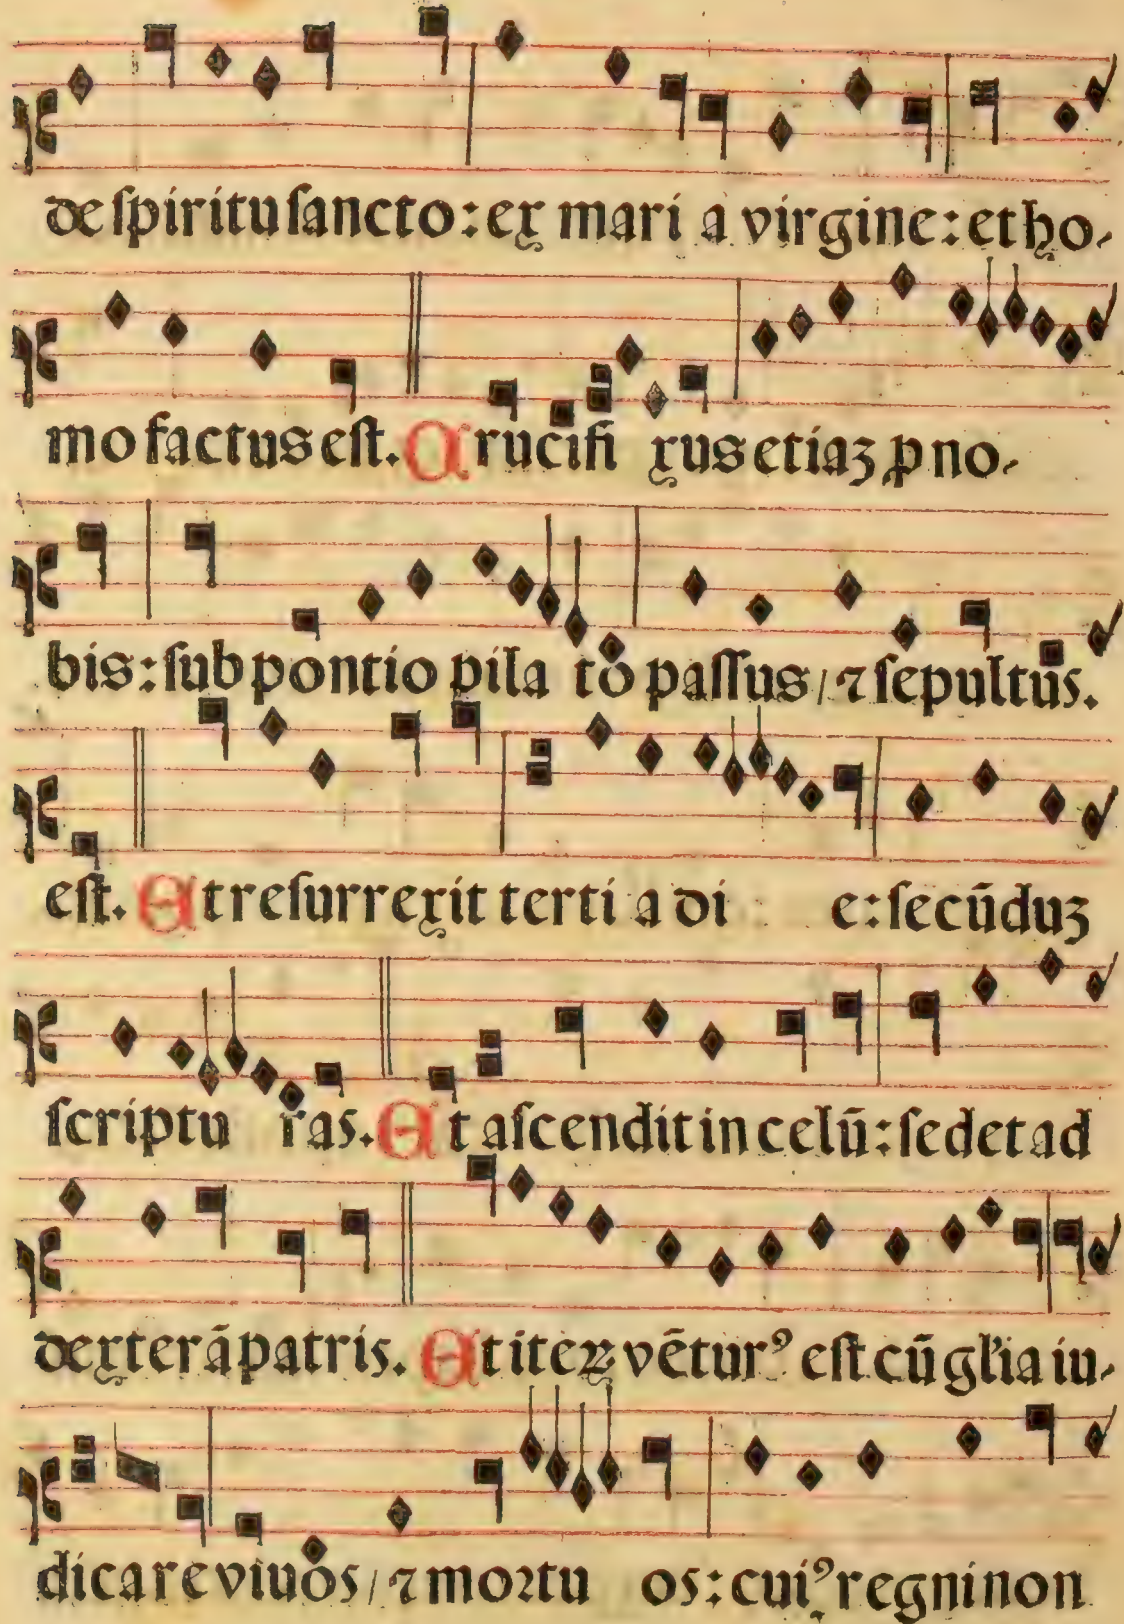 de ſpiritu ſancto: ex mari a virgine: et ho-
mo factus eſt. Crucifi xus etiaꝫ ꝓ no-
bis: ſub pontio pila to paſſus / ⁊ ſepultus.
eſt. Et reſurrexit terti a di e: ſecūduꝫ
ſcriptu ras. Et aſcendit in celū: ſedet ad
dexterā patris. Et iteꝝ vētur⁹ eſt cū gl'ia iu-
dicare viuos / ⁊ moꝛtu os: cui⁹ regni non